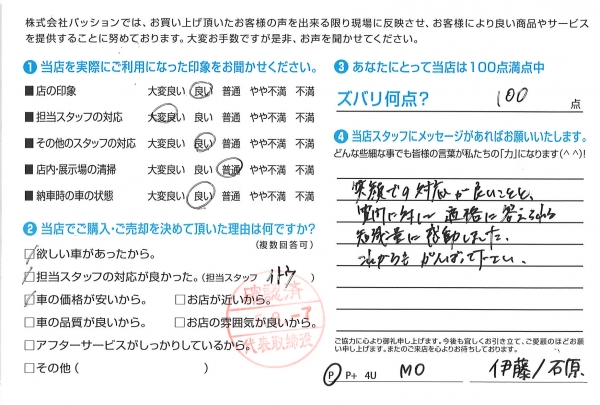 株式会社パッションでは、お買い上げ頂いたお客様の声を出来る限り現場に反映させ、お客様により良い商品やサービス
を提供することに努めております。大変お手数ですが是非、お声を聞かせてください。
❶ 当店を実際にご利用になった印象をお聞かせください。
■ 店の印象 大変良い 良い 普通 やや不満 不満
■ 担当スタッフの対応 大変良い 良い 普通 やや不満 不満
■ その他のスタッフの対応 大変良い 良い 普通 やや不満 不満
■ 店内・展示場の清掃 大変良い 良い 普通 やや不満 不満
■ 納車時の車の状態 大変良い 良い 普通 やや不満 不満
❷ 当店でご購入・ご売却を決めて頂いた理由は何ですか?
(複数回答可)
□欲しい車があったから。
□担当スタッフの対応が良かった。(担当スタッフ イトウ
□車の価格が安いから。 □お店が近いから。
□車の品質が良いから。 □お店の雰囲気が良いから。
□アフターサービスがしっかりしているから。
□その他 ( )
確認済
代表取締役
❸ あなたにとって当店は100点満点中
ズバリ何点? 100 点
❹ 当店スタッフにメッセージがあればお願いいたします。
どんな些細な事でも皆様の言葉が私たちの「力」になります(^ ^)!
笑顔での対応が良いことと、
質問に対し 適格に答えられる
知識量に感動しました。
これからも がんばって下さい。
ご協力に心より御礼申し上げます。今後も宜しくお引き立て、ご愛顧のほどお願
い申し上げます。またのご来店を心よりお待ちしております。
P P+ 4U MO 伊藤/石原